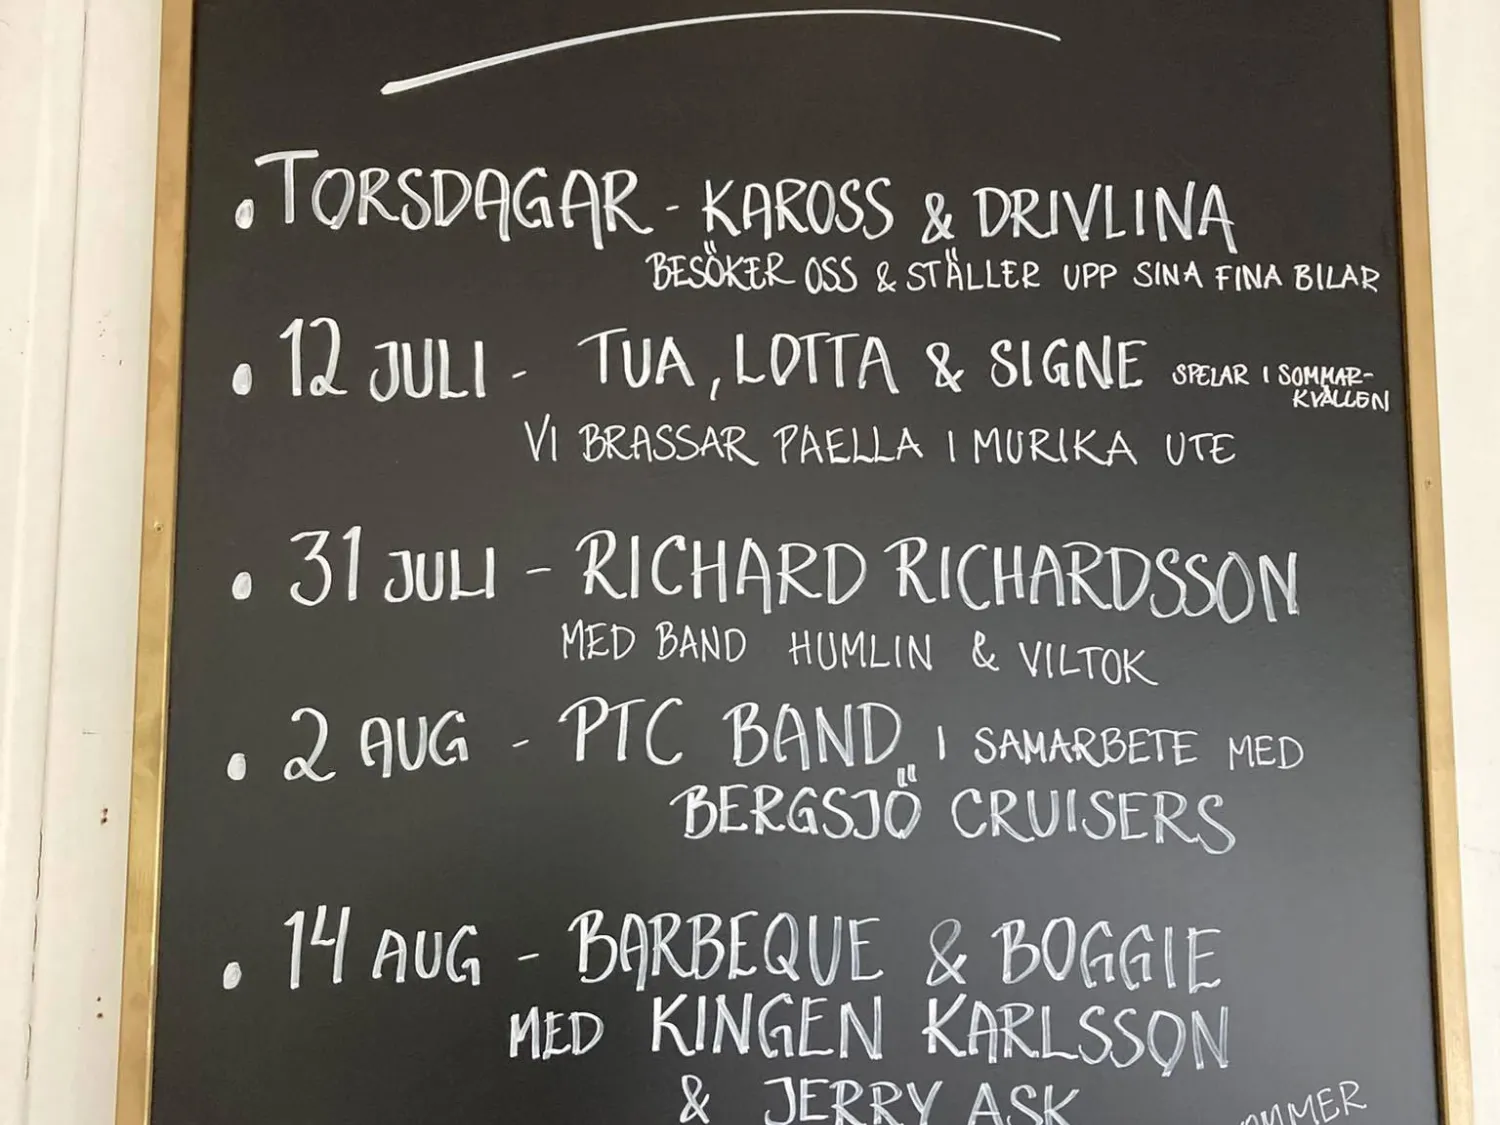 • TORSDAGAR - KAROSS & DRIVLINA
BESÖKER OSS & STÄLLER UPP SINA FINA BILAR
• 12 JULI - TUA, LOTTA & SIGNE SPELAR I SOMMAR-
KVÄLLEN
VI BRASSAR PAELLA I MURIKA UTE
• 31 JULI - RICHARD RICHARDSSON
MED BAND HUMLIN & VILTOK
• 2 AUG - PTC BAND I SAMARBETE MED
BERGSJÖ CRUISERS
• 14 AUG - BARBEQUE & BOGGIE
MED KINGEN KARLSSON
& JERRY ASK